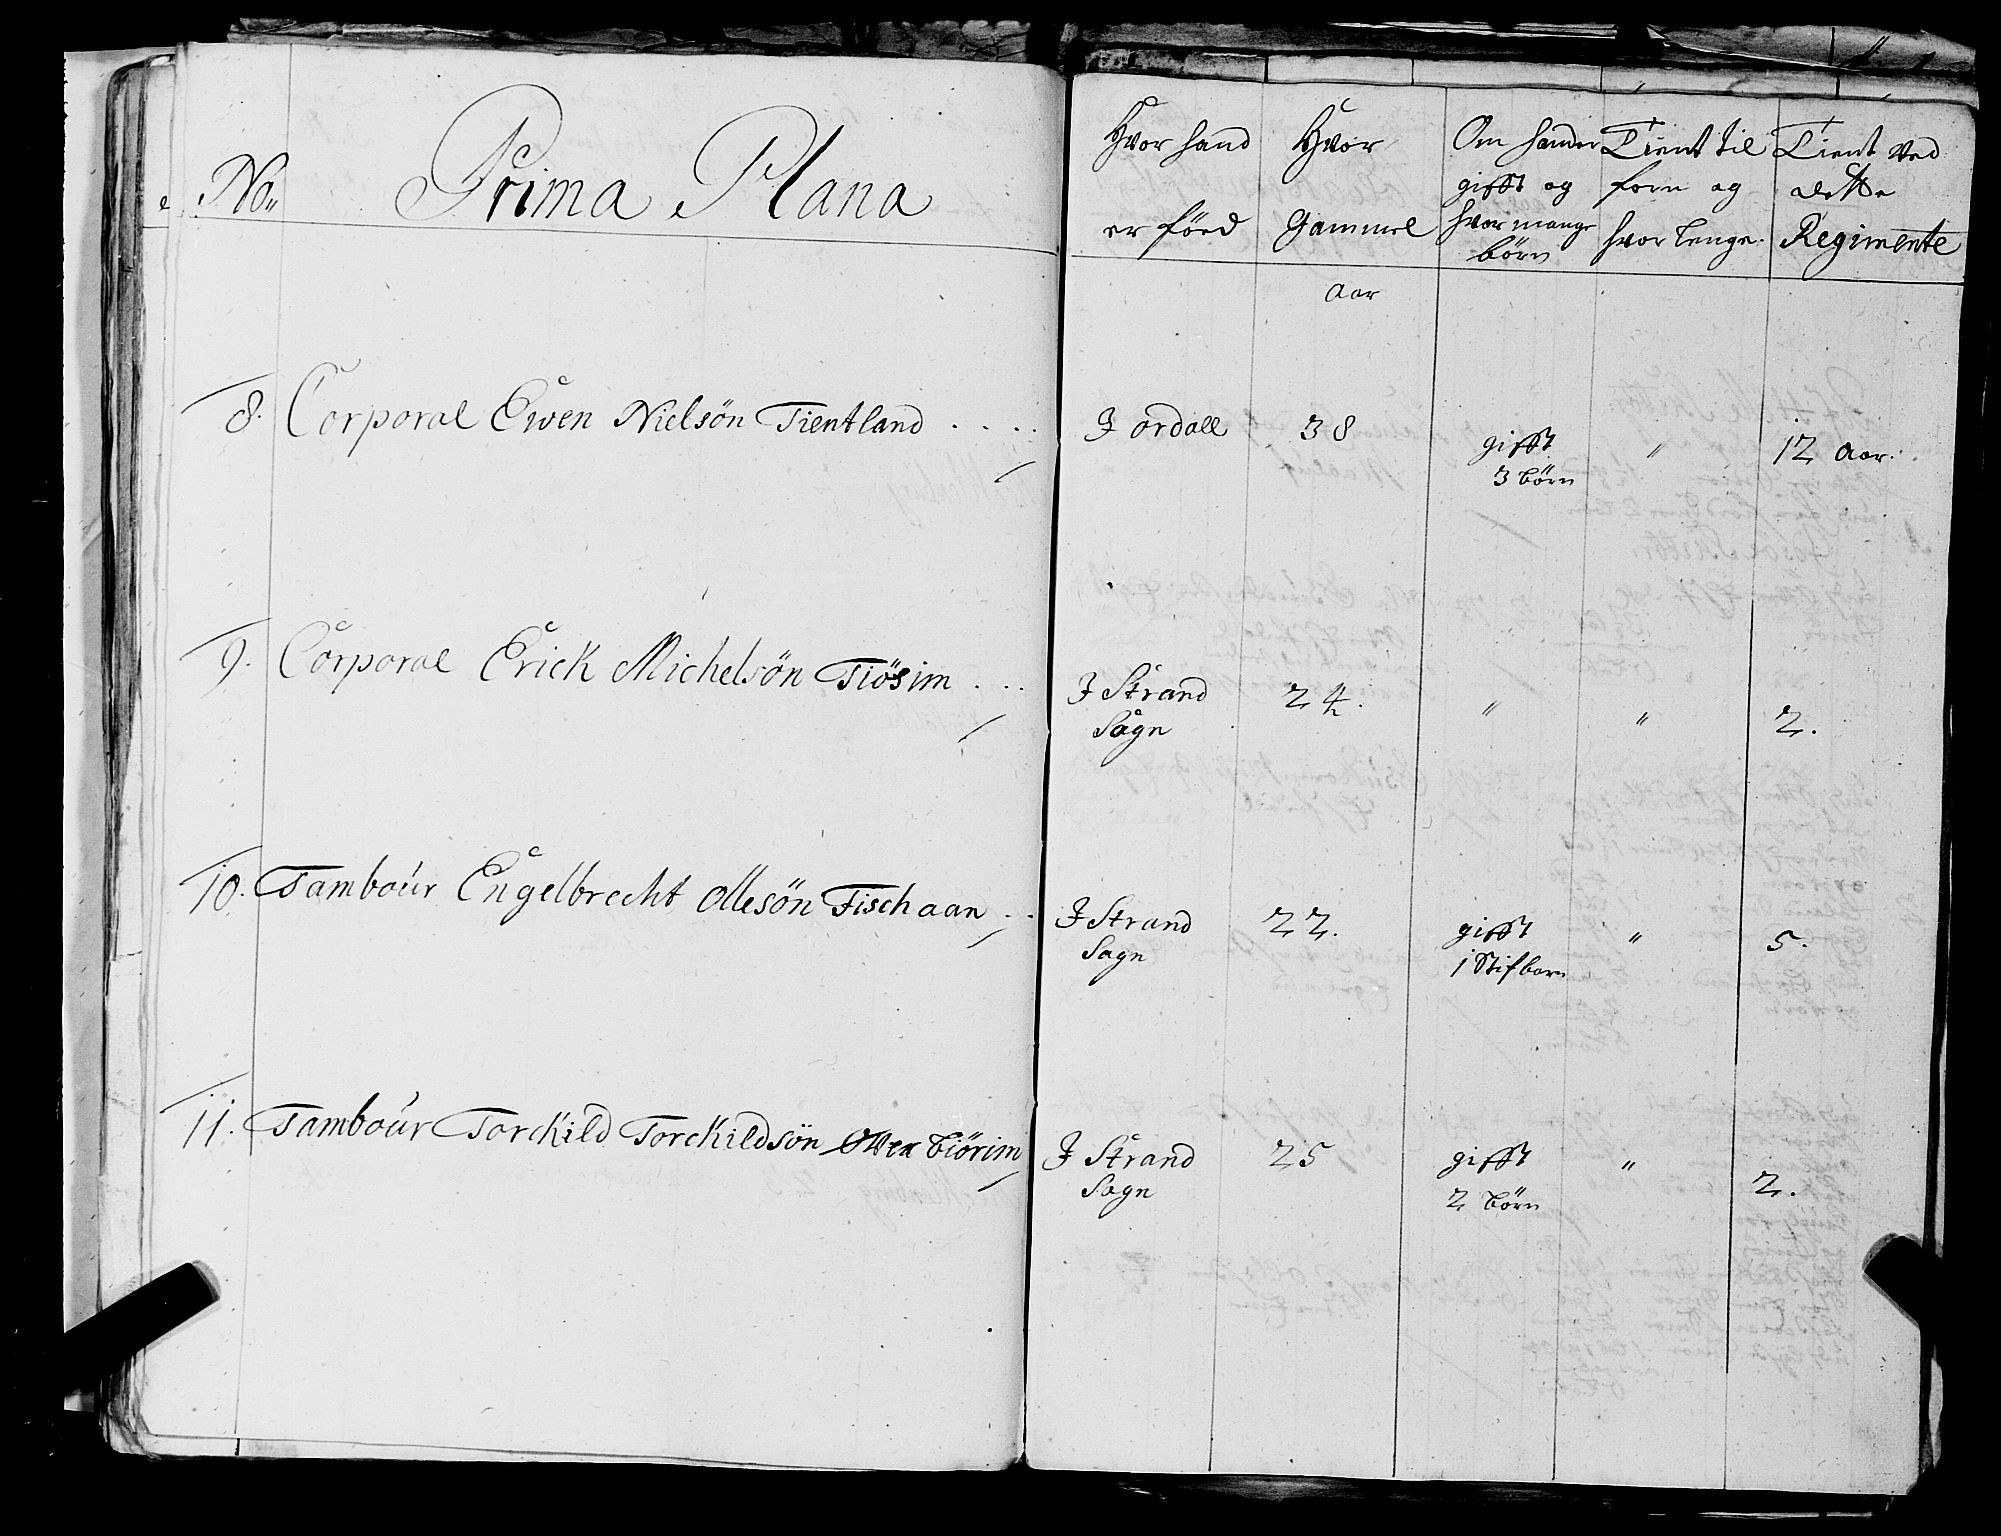 No Prima Plana
Hvor hand er föed
Hvor Gammel
Om hand er gifft og hvor mange börn
Tient til forn og hvor lenge.
Tient ved dette Regimente
Aar
8. Corporal Ewen Nielsön Tientland . . . . I ordall 38 gifft 3 börn " 12 Aar.
9. Corporal Erick Michelsön Tiösim . . . I Strand Sogn 24. " " 2.
10. Tambour Engelbrecht Ollesön Fischaan . . I Strand Sogn 22. gifft 1 Stifbarn " 5.
11. Tambour Torckild Torckildsön tiörim I Strand Sogn 25 gifft 2 börn " 2.